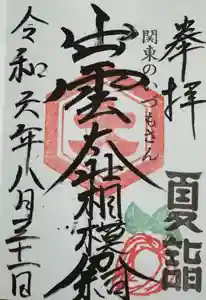 奉拝
夏詣
関東のいづもさん
出雲大社相模分祠
令和六年八月三十一日